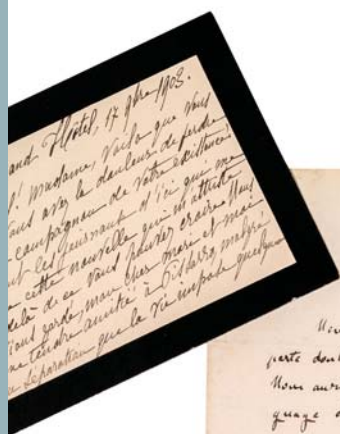 and Hôtel, 17 9bre 1903.
! Madame, Voilà que Vous
avez la douleur de perdre
compagnon de Votre existence!
les journaux d'ici qui me
cette nouvelle qui m'attriste
delà de ce que Vous pouvez croire. Nous
gardé, mon cher mari et moi
tendre amitié à Pissarro, malgré
séparation que la vie impose quelque
perte dont
Nous